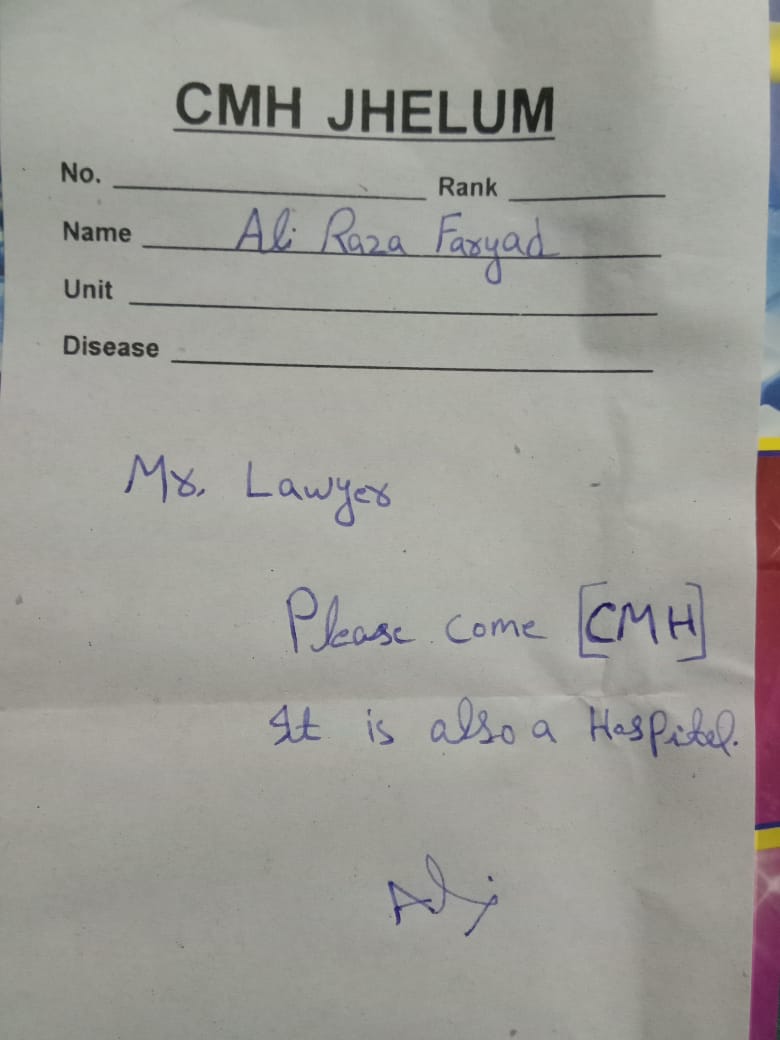 CMH JHELUM
No. Rank
Name Ali Raza Faryad
Unit
Disease
Mr. Lawyer
Please come [CMH]
It is also a Hospitel.
Ali